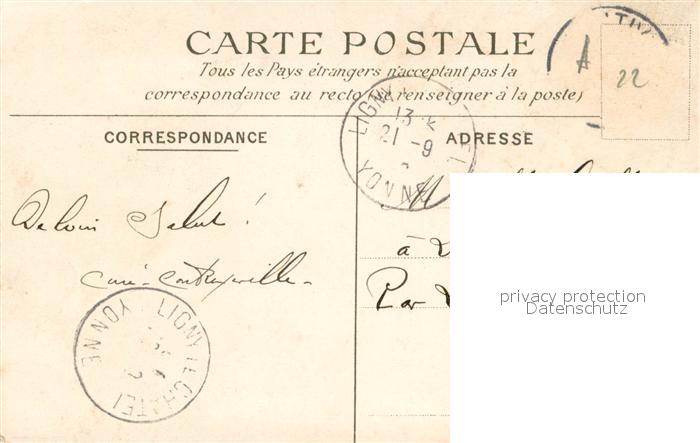 CARTE POSTALE
Tous les Pays étrangers n'acceptent pas la
correspondance au recto (se renseigner à la poste)
CORRESPONDANCE
ADRESSE
LIGNY
13
21 - 9
YONNE
De loin Salut !
22
à
Par
LIGNY LE CHATEL
YONNE
privacy protection
Datenschutz